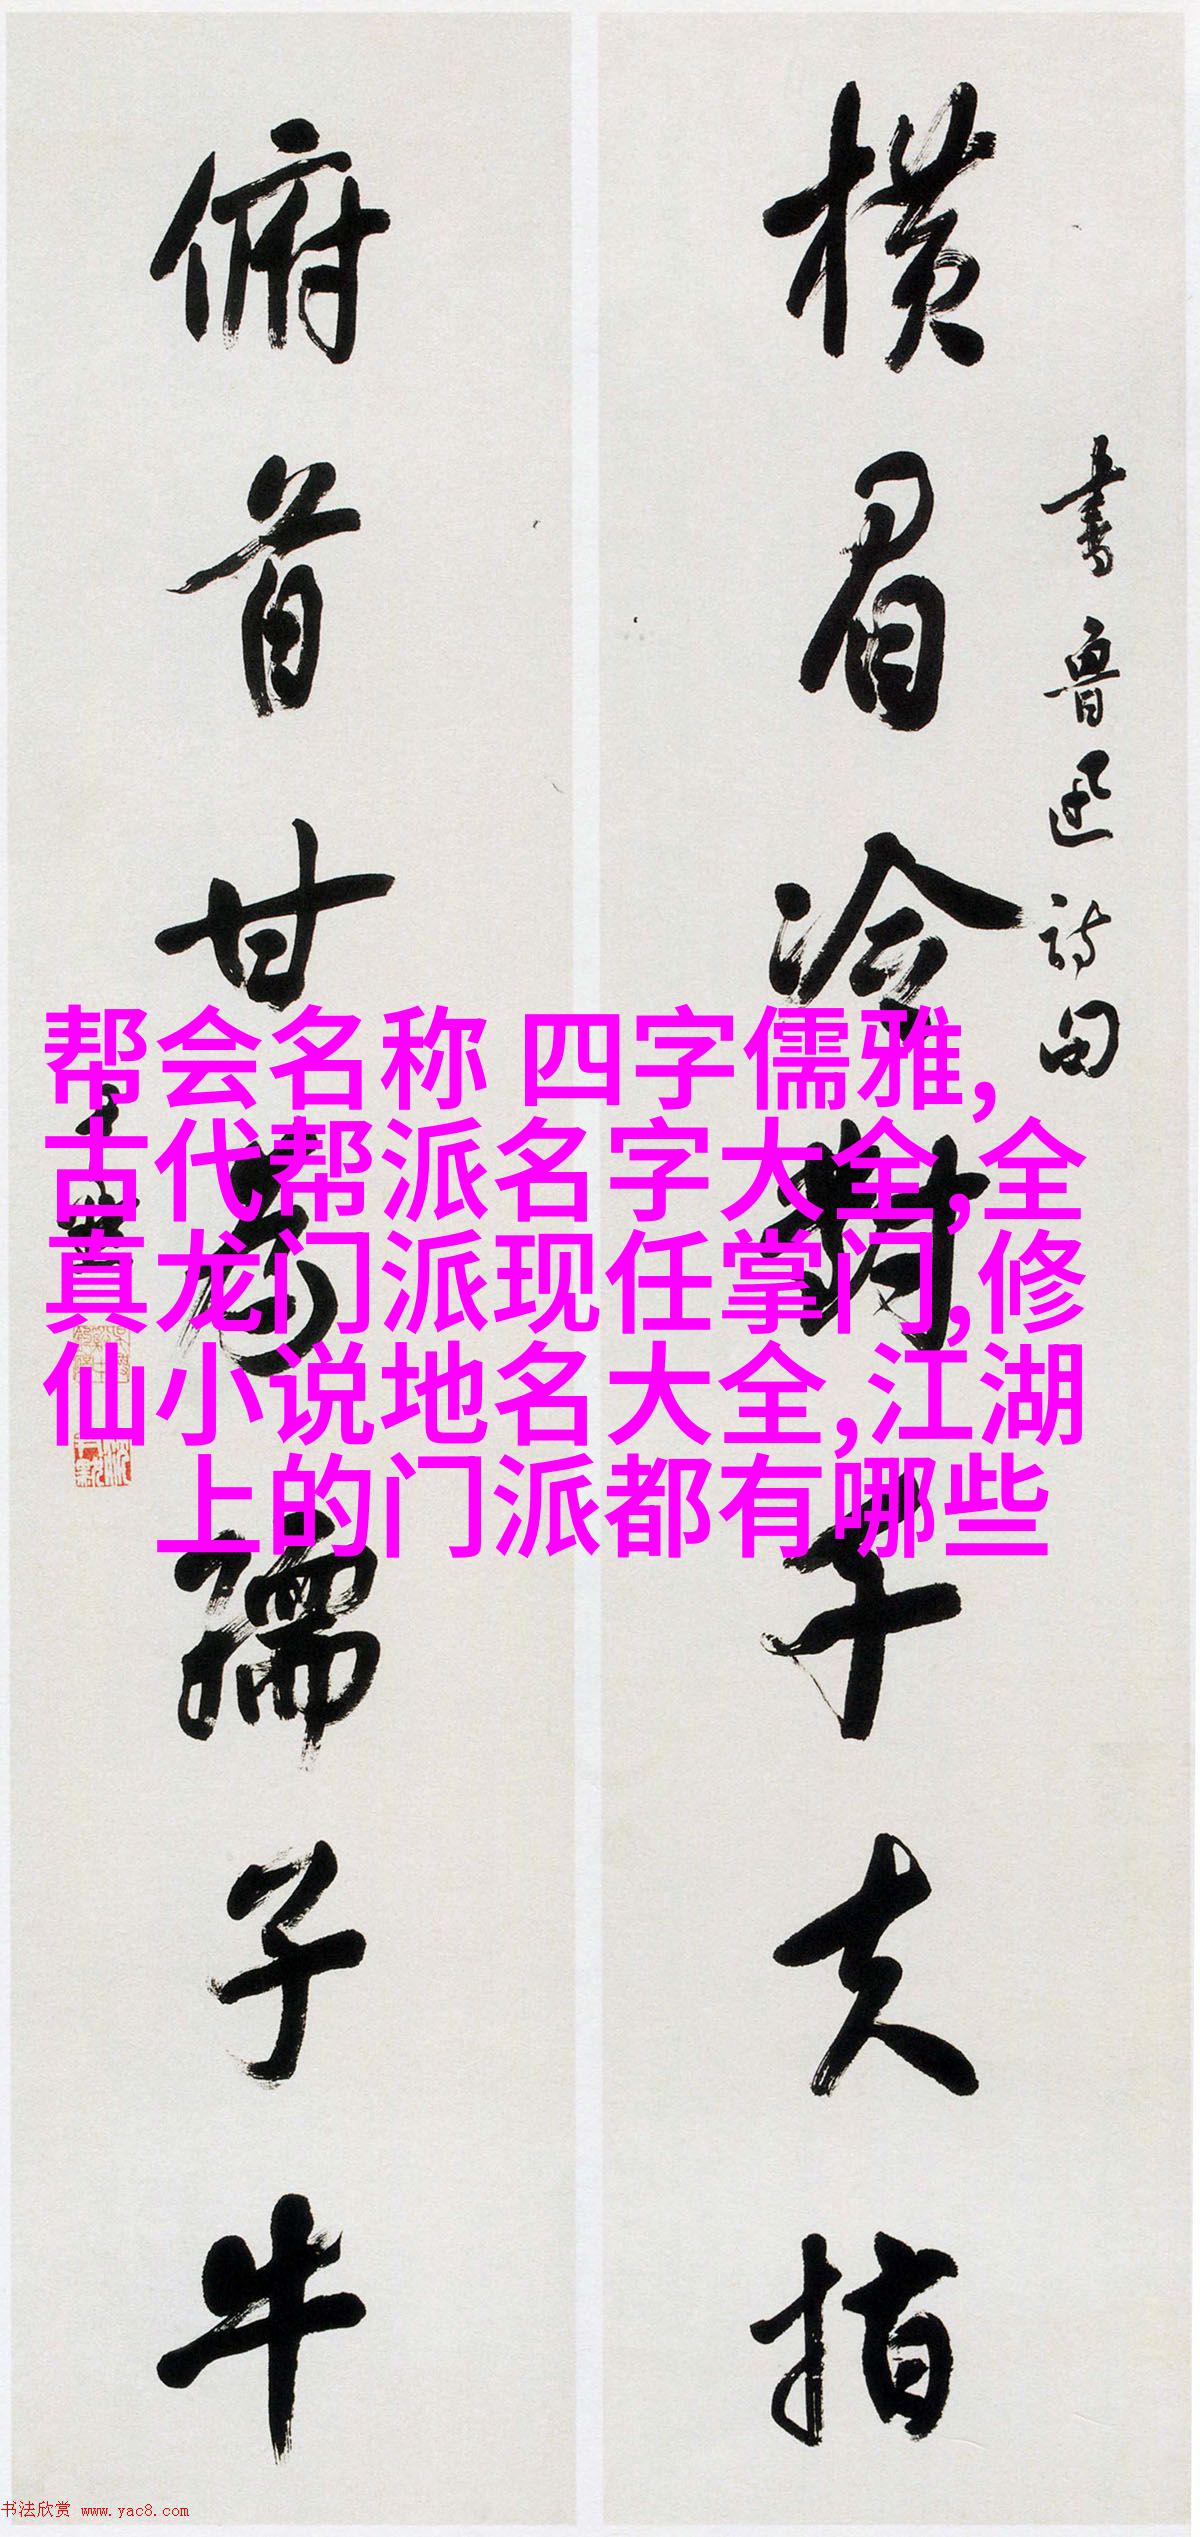 横眉冷对千夫指
书鲁迅诗句
俯首甘为孺子牛
帮会名称 四字儒雅,
古代帮派名字大全,全
真龙门派现任掌门,修
仙小说地名大全,江湖
上的门派都有哪些
书法欣赏 www.yac8.com